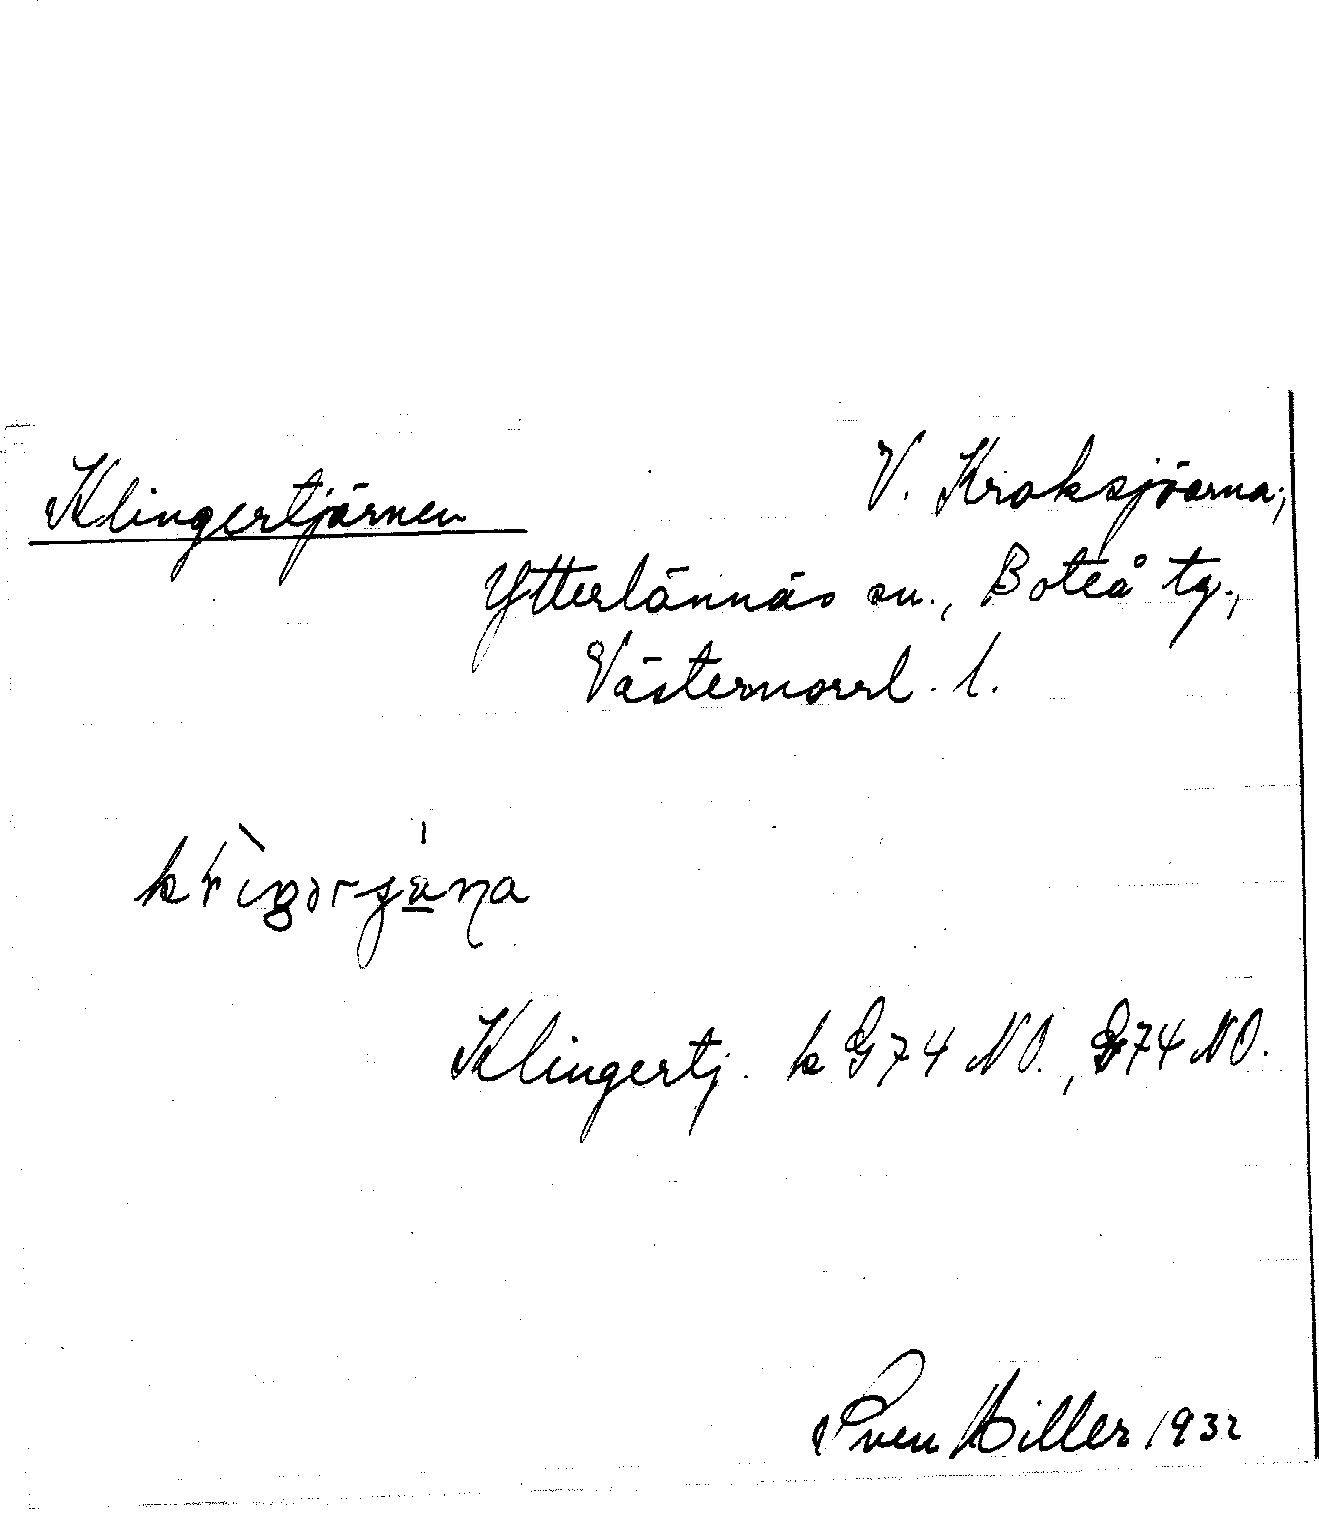 Klingertjärnen
V. Kroksjöarna;
Ytterlännäs sn., Boteå tg.,
Västernorrl. l.
Klingertj. k G74 NO., G74 NO.
Sven Hiller 1932